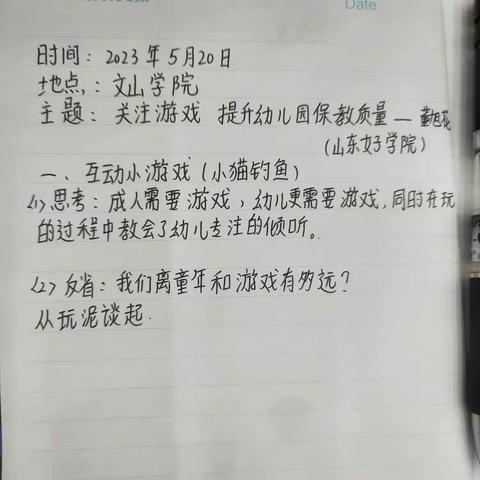 Date
时间：2023年5月20日
地点：文山学院
主题：关注游戏 提升幼儿园保教质量—董旭花
(山东女子学院)
一、互动小游戏(小猫钓鱼)
(1)思考：成人需要游戏，幼儿更需要游戏，同时在玩
的过程中教会了幼儿专注的倾听。
(2)反省：我们离童年和游戏有多远？
从玩泥谈起.